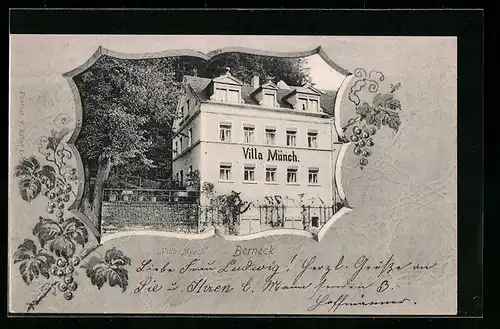 Villa Münch.
"Villa Münch" Berneck
Liebe Frau Ludwig! Herzl. Grüße an
Sie u. Ihren l. Mann senden 3
Hoffmänner.